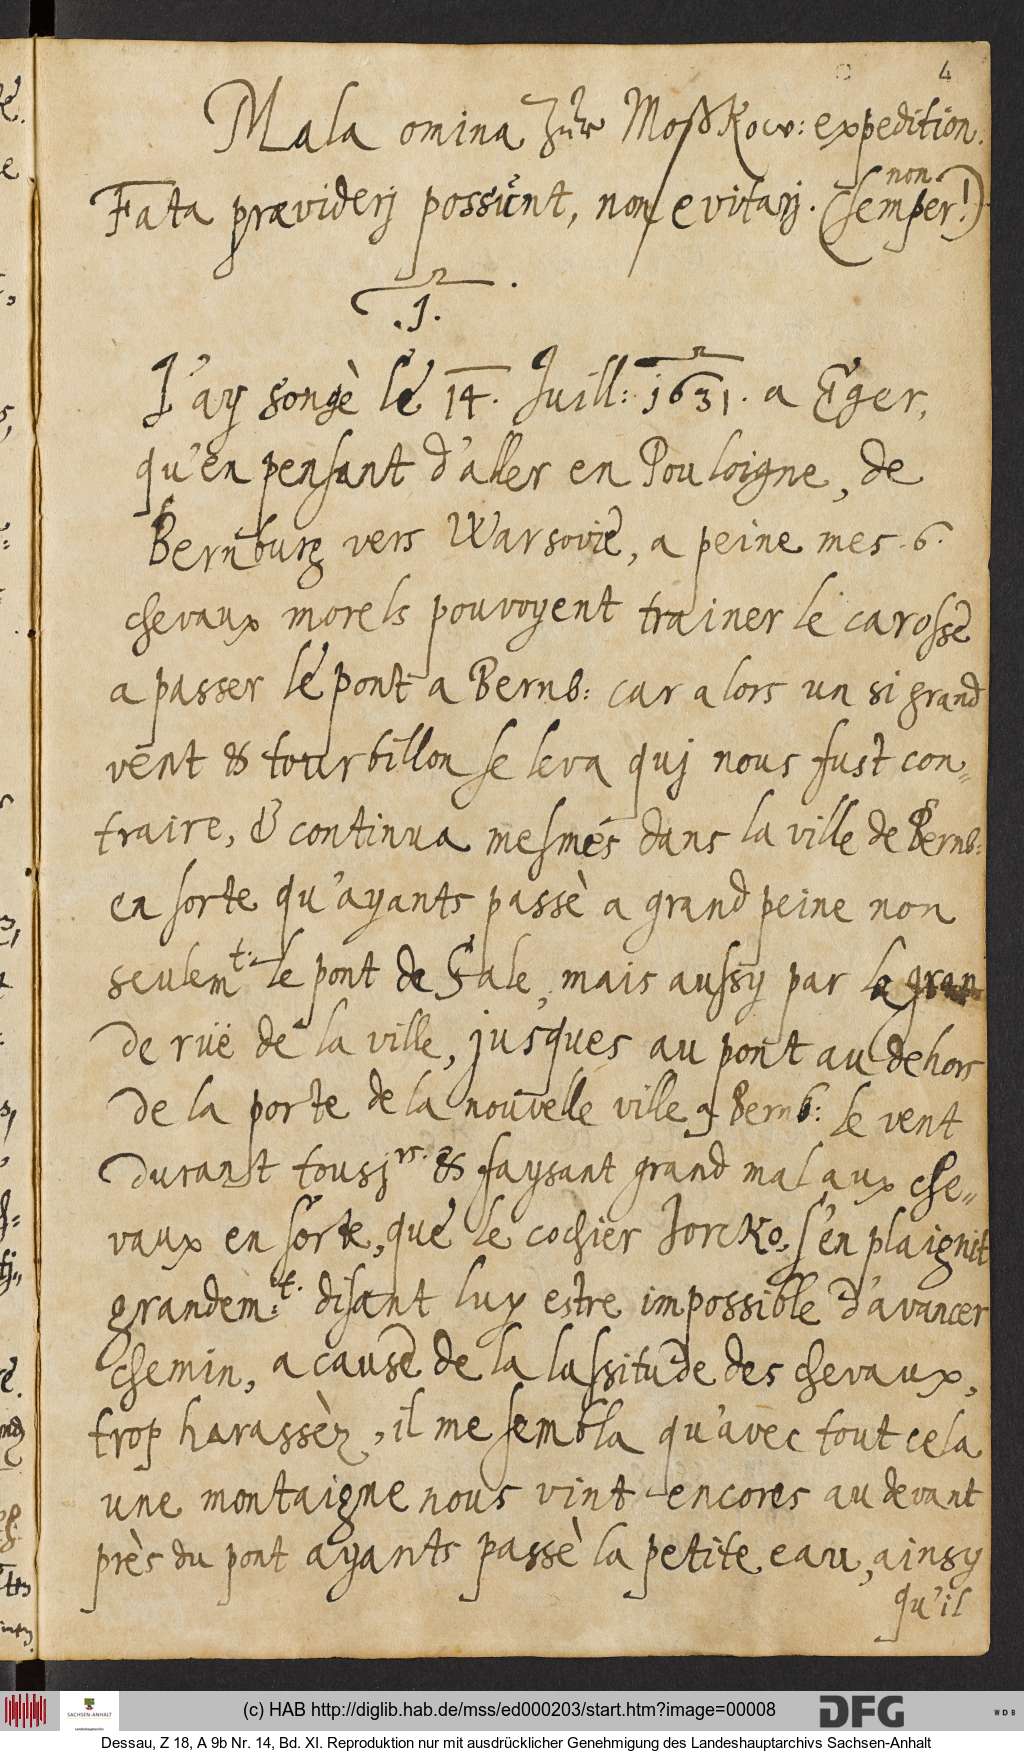 4
Mala omina zur Moßkow: expedition.
Fata præviderj possunt, non evitarj. (non semper!)
.1.
J'ay songè le 14. Juill: 1631. a Eger,
qu'en pensant d'aller en Pouloigne, de
Bernburg vers Warsovie, a peine mes .6.
chevaux morels pouvoyent trainer le carosse
a passer le pont a Bernb: car alors un si grand
vent & tourbillon se leva quj nous fust con=
traire, & continua mesmes dans la ville de Bernb:
en sorte qu'ayants passè a grand peine non
seulem.t le pont de Sale, mais aussy par la gran
de rüe de la ville, jusques au pont au dehors
de la porte de la nouvelle ville Bernb: le vent
durant tousj.rs & faysant grand mal aux che=
vaux en sorte, que le cochier Jorcko, s'en plaignit
grandem:t disant luy estre impossible d'avancer
chemin, a cause de la lassitude des chevaux,
trop harassèz, il me sembla qu'avec tout cela
une montaigne nous vint encores au devant
près du pont ayants passè la petite eau, ainsy
qu'il
(c) HAB http://diglib.hab.de/mss/ed000203/start.htm?image=00008
SACHSEN-ANHALT
DFG
WDB
Dessau, Z 18, A 9b Nr. 14, Bd. XI. Reproduktion nur mit ausdrücklicher Genehmigung des Landeshauptarchivs Sachsen-Anhalt